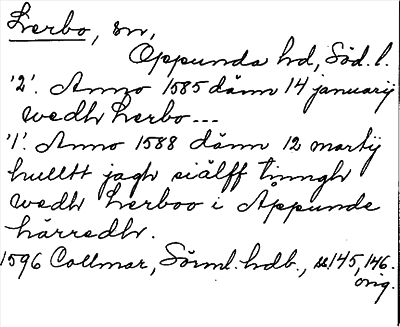 Lerbo, sn,
Oppunda hd, Söd. l.
'2'. Anno 1585 dänn 14 januarij
wedh Lerbo---
'1'. Anno 1588 dänn 12 martij
hulltt jagh siälff tinngh
wedh Lerboo i Åppunde
härredh.
1596 Collmar, Sörml. hdb., 145, 146.
orig.